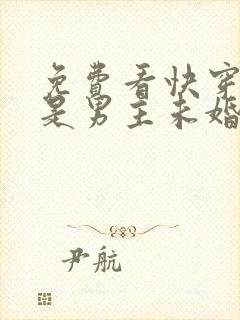 免費看快穿
是男主未婚
尹航